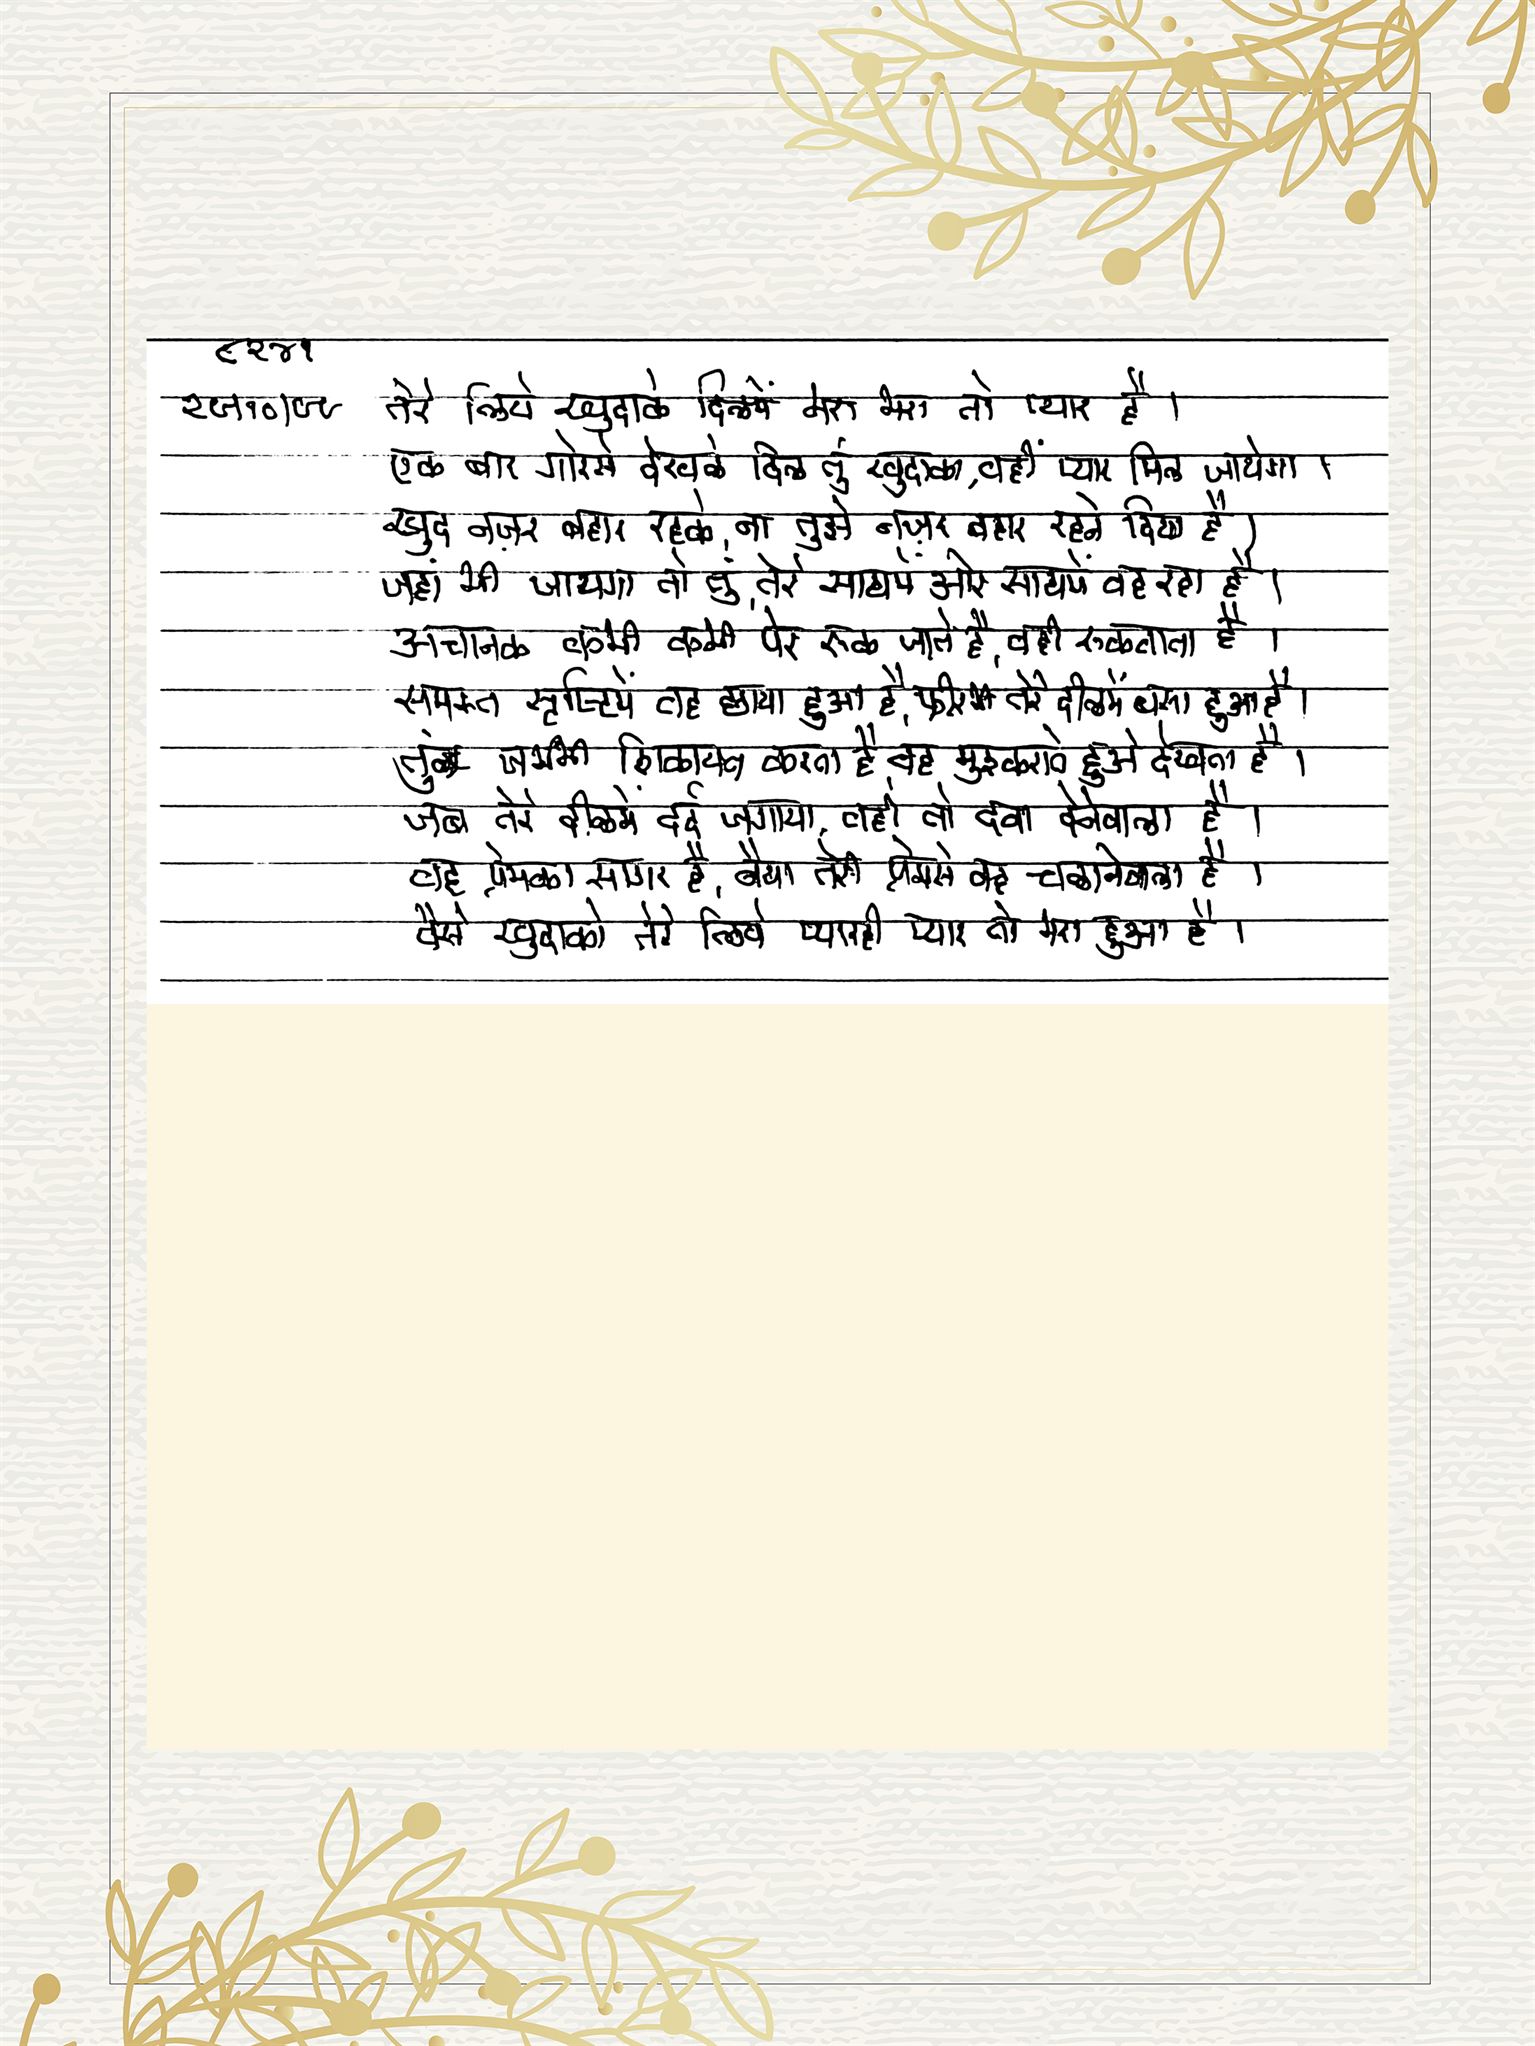 ९२४१
तेरे लिये खुदाके दिलमें भरा भरा तो प्यार है ।
एक बार गोरसे देखले दिल तुं खुदाका, वहीं प्यार मिल जायेगा ।
खुद नज़र बहार रहके, ना तुझे नज़र बहार रहने दिया है ।
जहां भी जायगा तो तुं, तेरे साथमें और साथमें वह रहा है ।
अचानक कभी कभी पेर रुक जाते है, वही रुकवाता है ।
समस्त सृष्टिमें वह छाया हुआ है, फीरभी तेरे दीलमें बसा हुआ है ।
तुं जभभी शिकायत करता है, वह मुश्कराते हुओ देखता है ।
जब तेरे दीलमें दर्द जगाया, वहीं तो दवा देनेवाला है ।
वह प्रेमका सागर है, नैया तेरी प्रेमसे वह चलानेवाला है ।
वैसे खुदाको तेरे लिये प्यारही प्यार तो भरा हुआ है ।